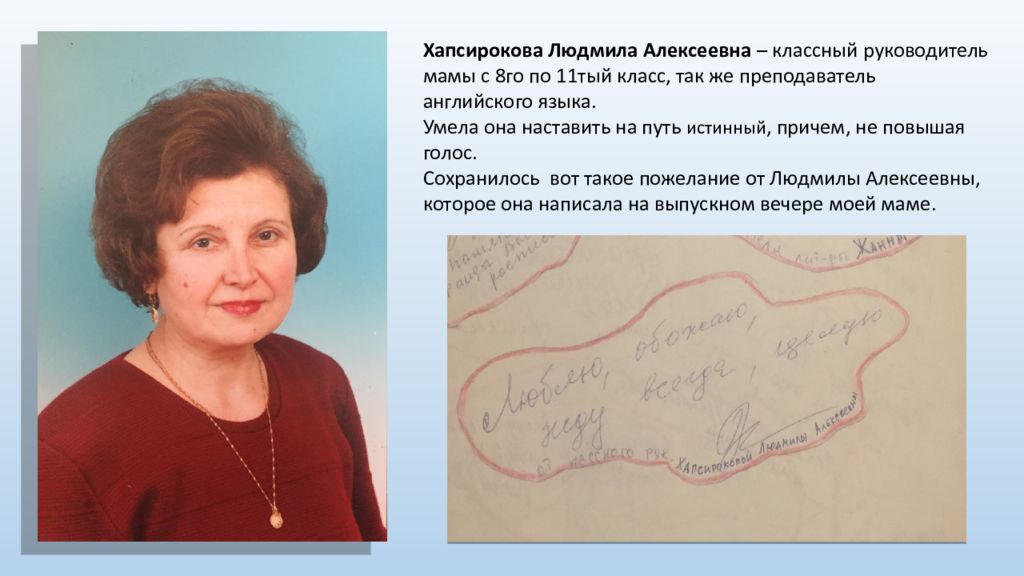 Хапсирокова Людмила Алексеевна – классный руководитель
мамы с 8го по 11тый класс, так же преподаватель
английского языка.
Умела она наставить на путь истинный, причем, не повышая
голос.
Сохранилось вот такое пожелание от Людмилы Алексеевны,
которое она написала на выпускном вечере моей маме.
Жанны
Люблю, обожаю,
жду всегда, целую
от классного рук. Хапсироковой Людмилы Алексеевны